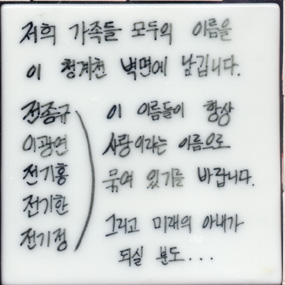 저희 가족들 모두의 이름을
이 청계천 벽면에 남깁니다.
전종규
이광연
전기홍
전기한
전기정
이 이름들이 항상
사랑이라는 이름으로
묶여 있기를 바랍니다.
그리고 미래의 아내가
되실 분도...